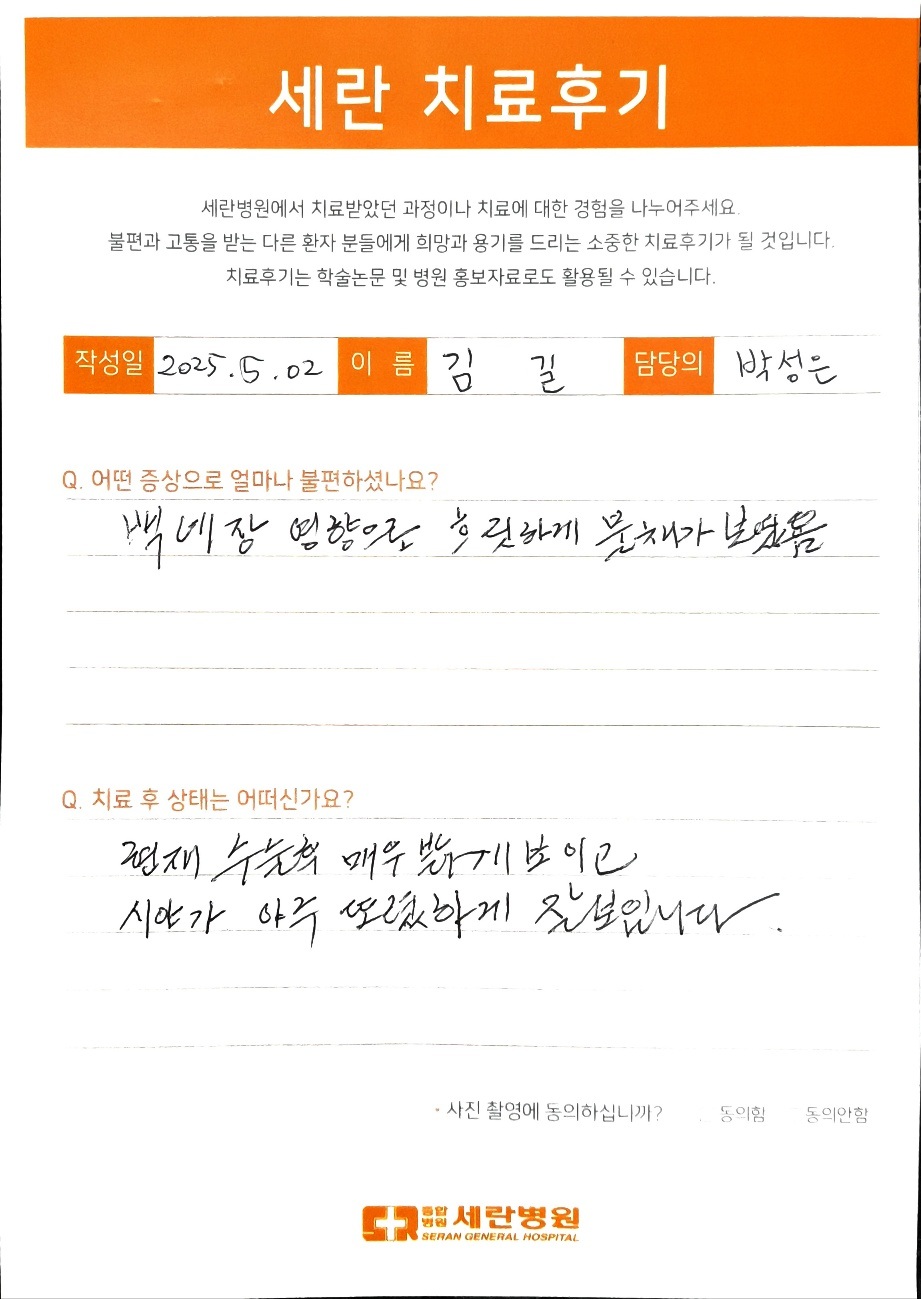 세란 치료후기
세란병원에서 치료받았던 과정이나 치료에 대한 경험을 나누어주세요.
불편과 고통을 받는 다른 환자 분들에게 희망과 용기를 드리는 소중한 치료후기가 될 것입니다.
치료후기는 학술논문 및 병원 홍보자료로도 활용될 수 있습니다.
작성일 2025.5.02 이 름 김 길 담당의 박성은
Q. 어떤 증상으로 얼마나 불편하셨나요?
백네장 영향으로 흐릿하게 물체가 보였음
Q. 치료 후 상태는 어떠신가요?
현재 수술후 매우 밝게 보이고
시야가 아주 또렸하게 잘보입니다.
- 사진 촬영에 동의하십니까? 동의함 동의안함
종합병원 세란병원
SERAN GENERAL HOSPITAL